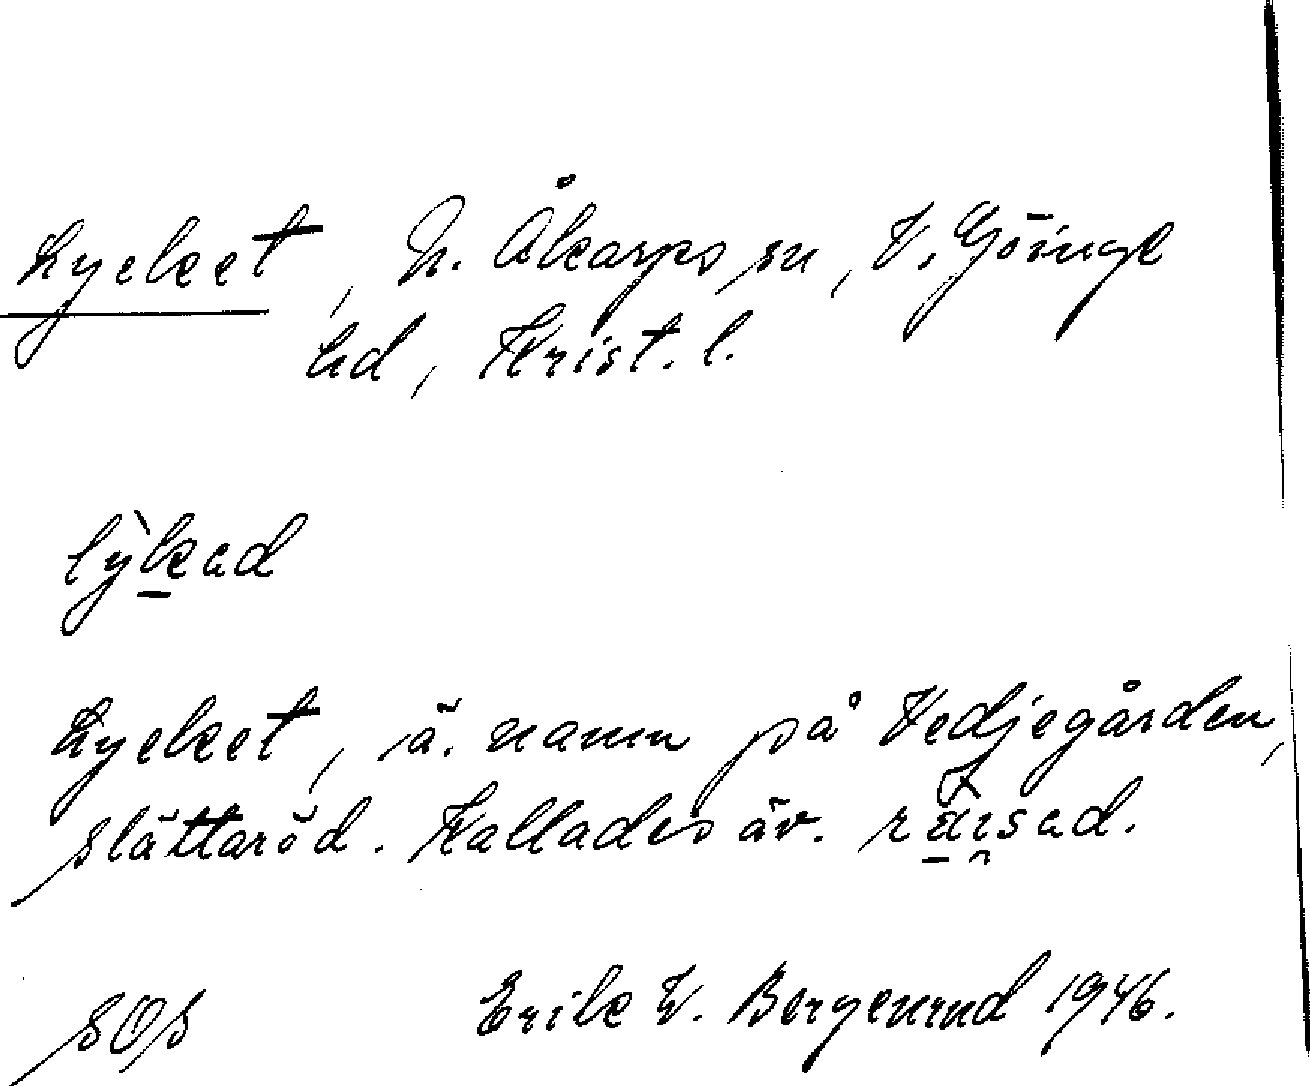 Lycket, N. Åkarps sn, V. Göinge
hd, Krist. l.
lỳkad
Lycket, ä. namn på Vedjegården,
Slättaröd. Kallades äv. räisad.
SOS Erik W. Bergenrud 1946.